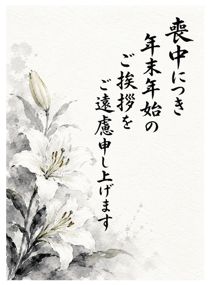 喪中につき
年末年始の
ご挨拶を
ご遠慮申し上げます